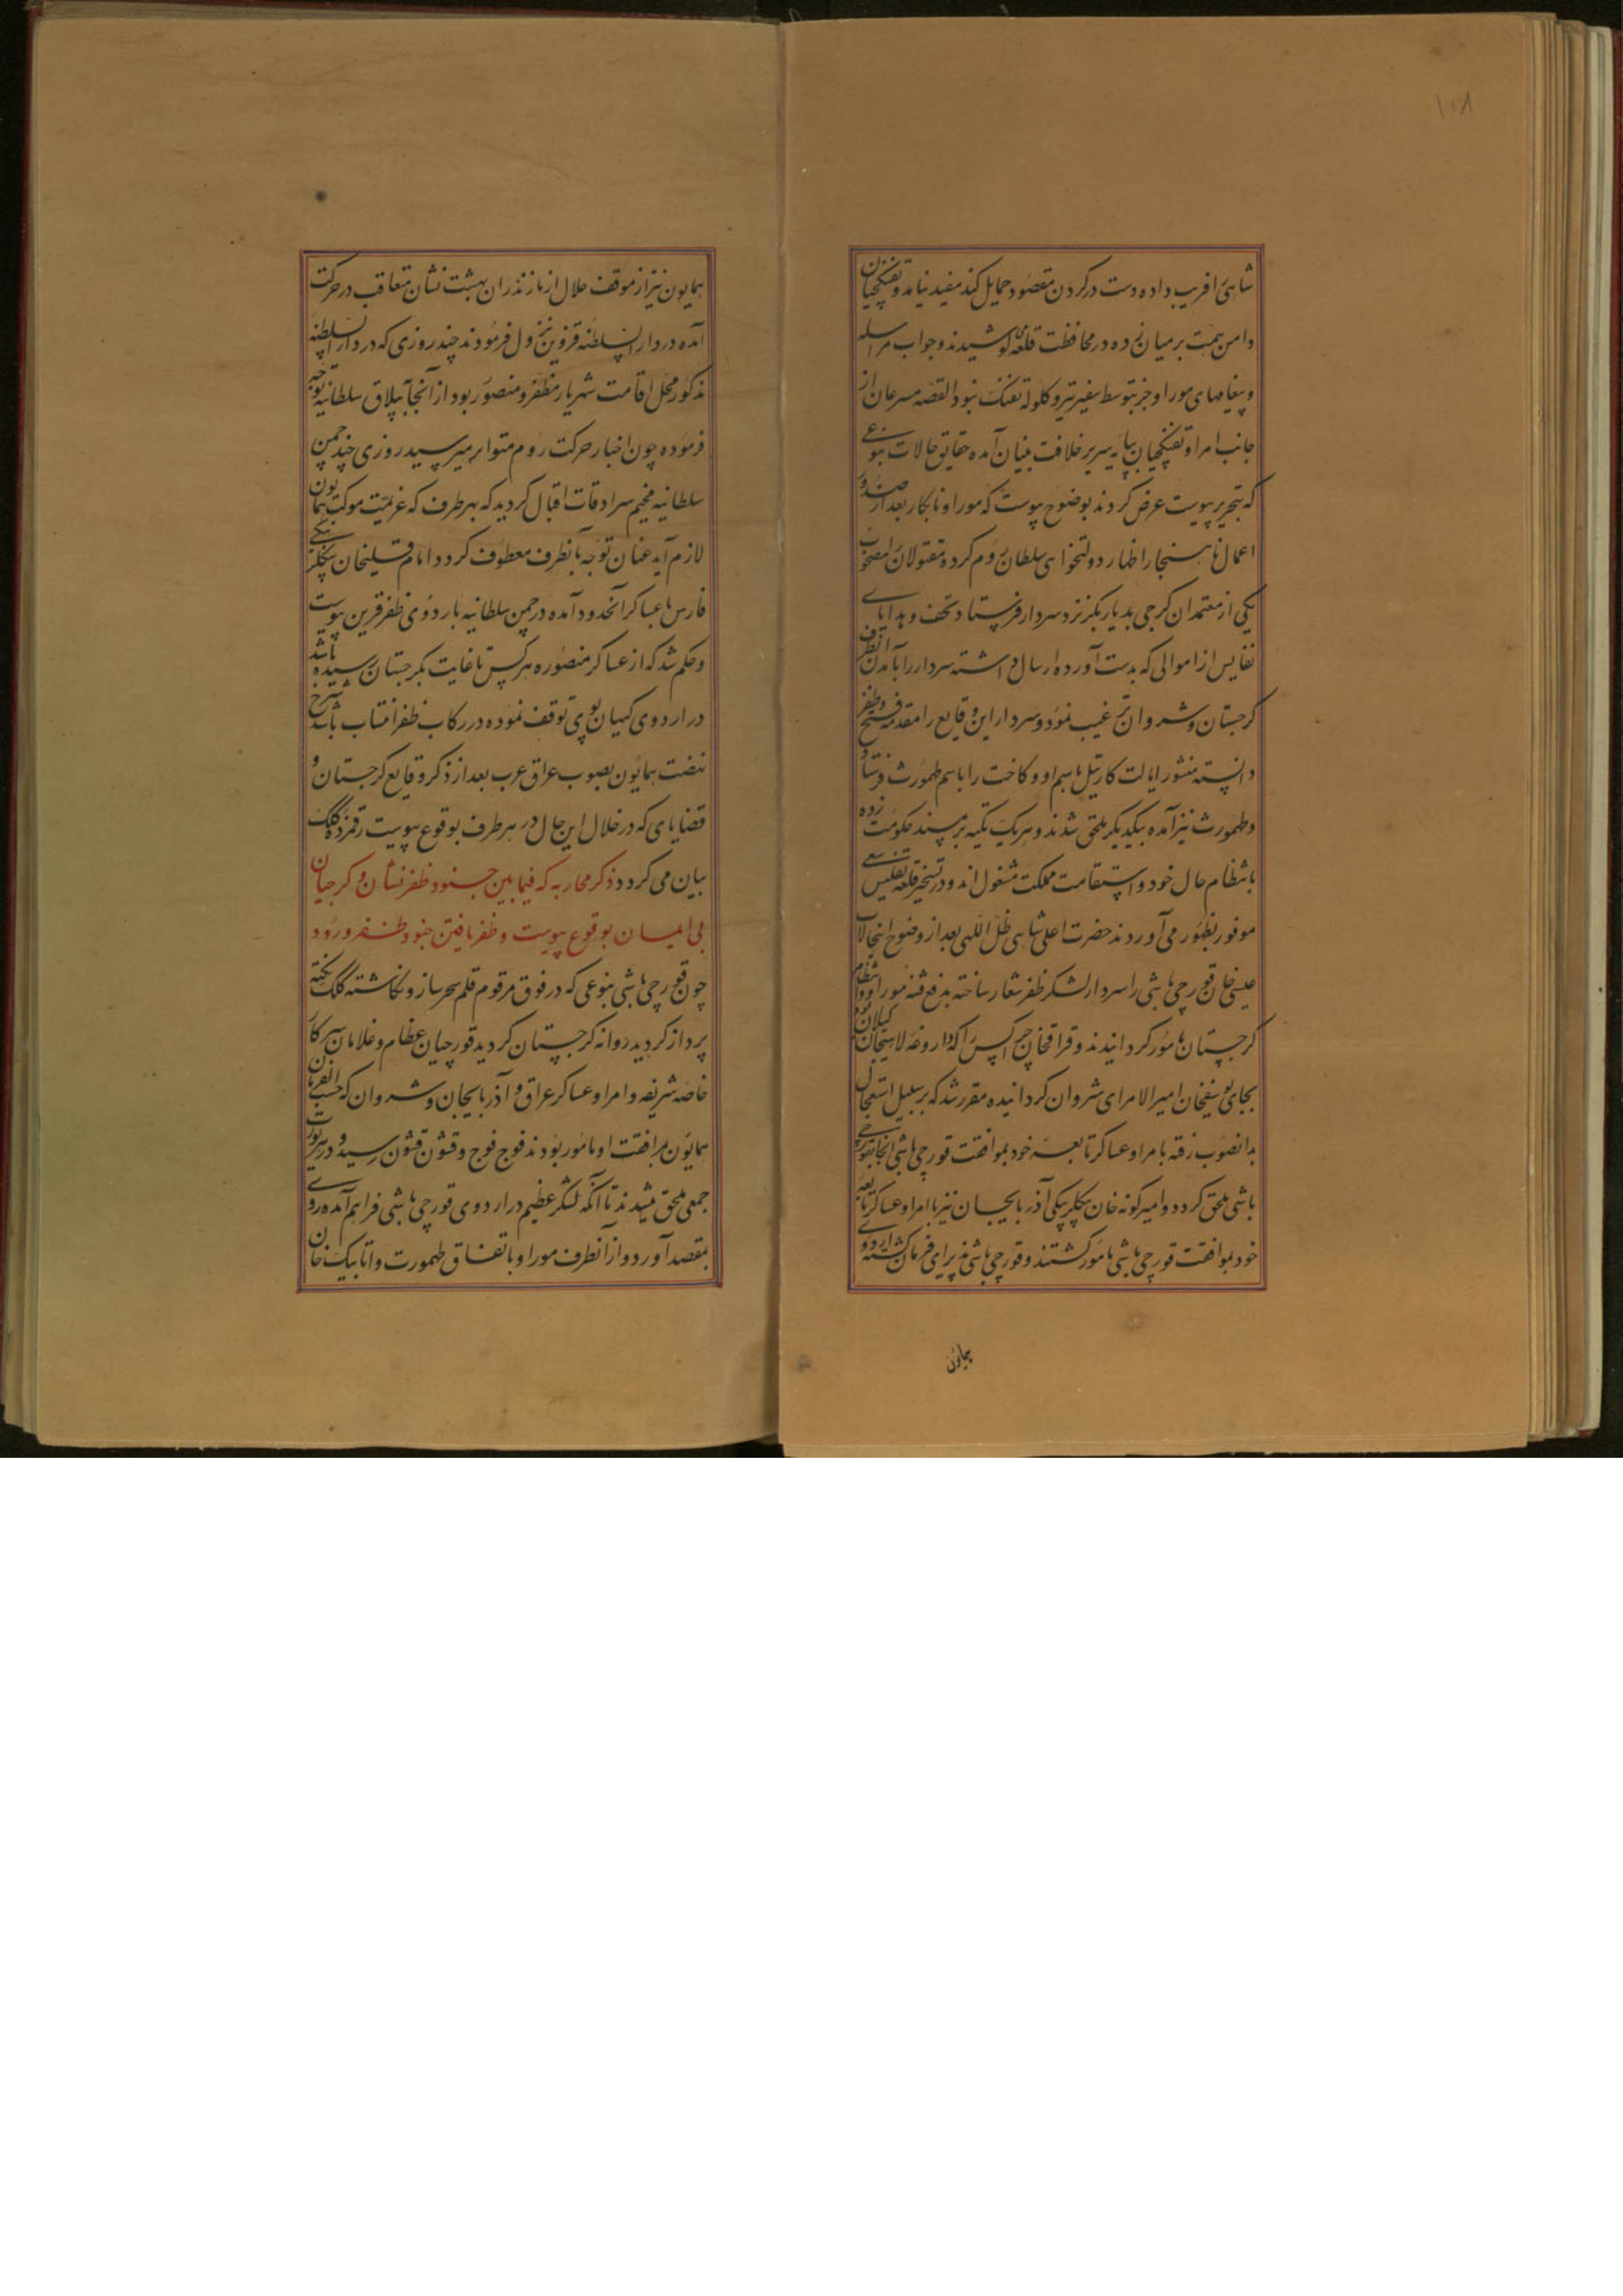 ۱۰۸
شاهی را فریب داده دست در گردن مقصود حمایل کند مفید نیامد و تفنکچیان
دامن همت بر میان زده در محافظت قلعه کوشیدند و جواب مراسله
و پیغامهای موراو جز بتوسط سفیر تیر و کلوله تفنک نبود القصه مسرعان از
جانب امرا و تفنکچیان بپایه سریر خلافت بنیان آمده حقایق حالات بنوعی
که بتحریر پیوست عرض کردند بوضوح پیوست که موراو نابکار بعد از صدور
اعمال ناهنجار اظهار دولتخواهی سلطان روم کرده مقتولان را مصحوب
یکی از معتمدان کرجی بدیار بکر نزد سردار فرستاد و تحف و هدایای
نفایس از اموالی که بدست آورده ارسال داشته سردار را بآمدن آنطرف
کرجستان و شروان ترغیب نمود و سردار این وقایع را مقدمه فتح و ظفر
دانسته منشور ایالت کارتیل باسم او و کاخت را باسم طهمورث فرستاد و
و طهمورث نیز آمده بیکدیکر ملحق شدند و هر یک تکیه بر مسند حکومت زده
بانتظام حال خود و استقامت مملکت مشغول اند و در تسخیر قلعه تفلیس سعی
موفور بظهور می آوردند حضرت اعلی شاهی ظل اللهی بعد از وضوح اینحالات
عیسی خان قورچی باشی را سردار لشکر ظفر شعار ساخته بدفع فتنه موراو و انتظام
کرجستان مامور کردانیدند و قزاقخان چرکس را که داروغه لاهیجان کیلان بود
بجای یوسفخان امیرالامرای شروان کردانیده مقرر شد که بر سبیل استعجال
بدانصوب رفته با امرا و عساکر تابعه خود بموافقت قورچی باشی آنجا بقورچی
باشی ملحق کردد و امیرکونه خان بیکلربیکی آذربایجان نیز با امرا و عساکر تابعه
خود بموافقت قورچی باشی مامور کشتند و قورچی باشی پذیرای فرمان کشته اردوی
همایون
همایون نیز از موقف جلال از مازندران بهشت نشان متعاقب در حرکت
آمده در دار السلطنه قزوین نزول فرمودند چند روزی که در دار السلطنه
مذکور محل اقامت شهریار مظفر و منصور بود از آنجا بییلاق سلطانیه توجه
فرموده چون اخبار حرکت روم متواتر میرسید روزی چند چمن
سلطانیه مخیم سرادقات اقبال کردید که بهر طرف که عزیمت موکب همایون
لازم آید عنان توجه بآنطرف معطوف کردد امامقلیخان بیکلربیکی
فارس با عساکر آنحدود آمده در چمن سلطانیه باردوی ظفر قرین پیوست
و حکم شد که از عساکر منصوره هر کس تا غایت بکرجستان رسیده باشد
در اردوی کیهان پوی توقف نموده در رکاب ظفر انتساب باشد شرح
نهضت همایون بصوب عراق عرب بعد از ذکر وقایع کرجستان و
قضایای که در خلال این حال در هر طرف بوقوع پیوست رقمزده کلک
بیان می کردد ذکر محاربه که فیمابین جنود ظفر نشان و کرجیان
بی ایمان بوقوع پیوست و ظفر یافتن جنود ظفر ورود
چون قورچی باشی بنوعی که در فوق مرقوم قلم سحر ساز و نکاشته کلک نکته
پرداز کردید روانه کرجستان کردید قورچیان عظام و غلامان سرکار
خاصه شریفه و امرا و عساکر عراق و آذربایجان و شروان که حسب الفرمان
همایون برافقت او مامور بودند فوج فوج و قشون قشون رسیده در هر یورت
جمعی ملحق میشدند تا آنکه لشکر عظیم در اردوی قورچی باشی فراهم آمده روی
بمقصد آورد و از آنطرف موراو باتفاق طهمورث و اتابیک خان